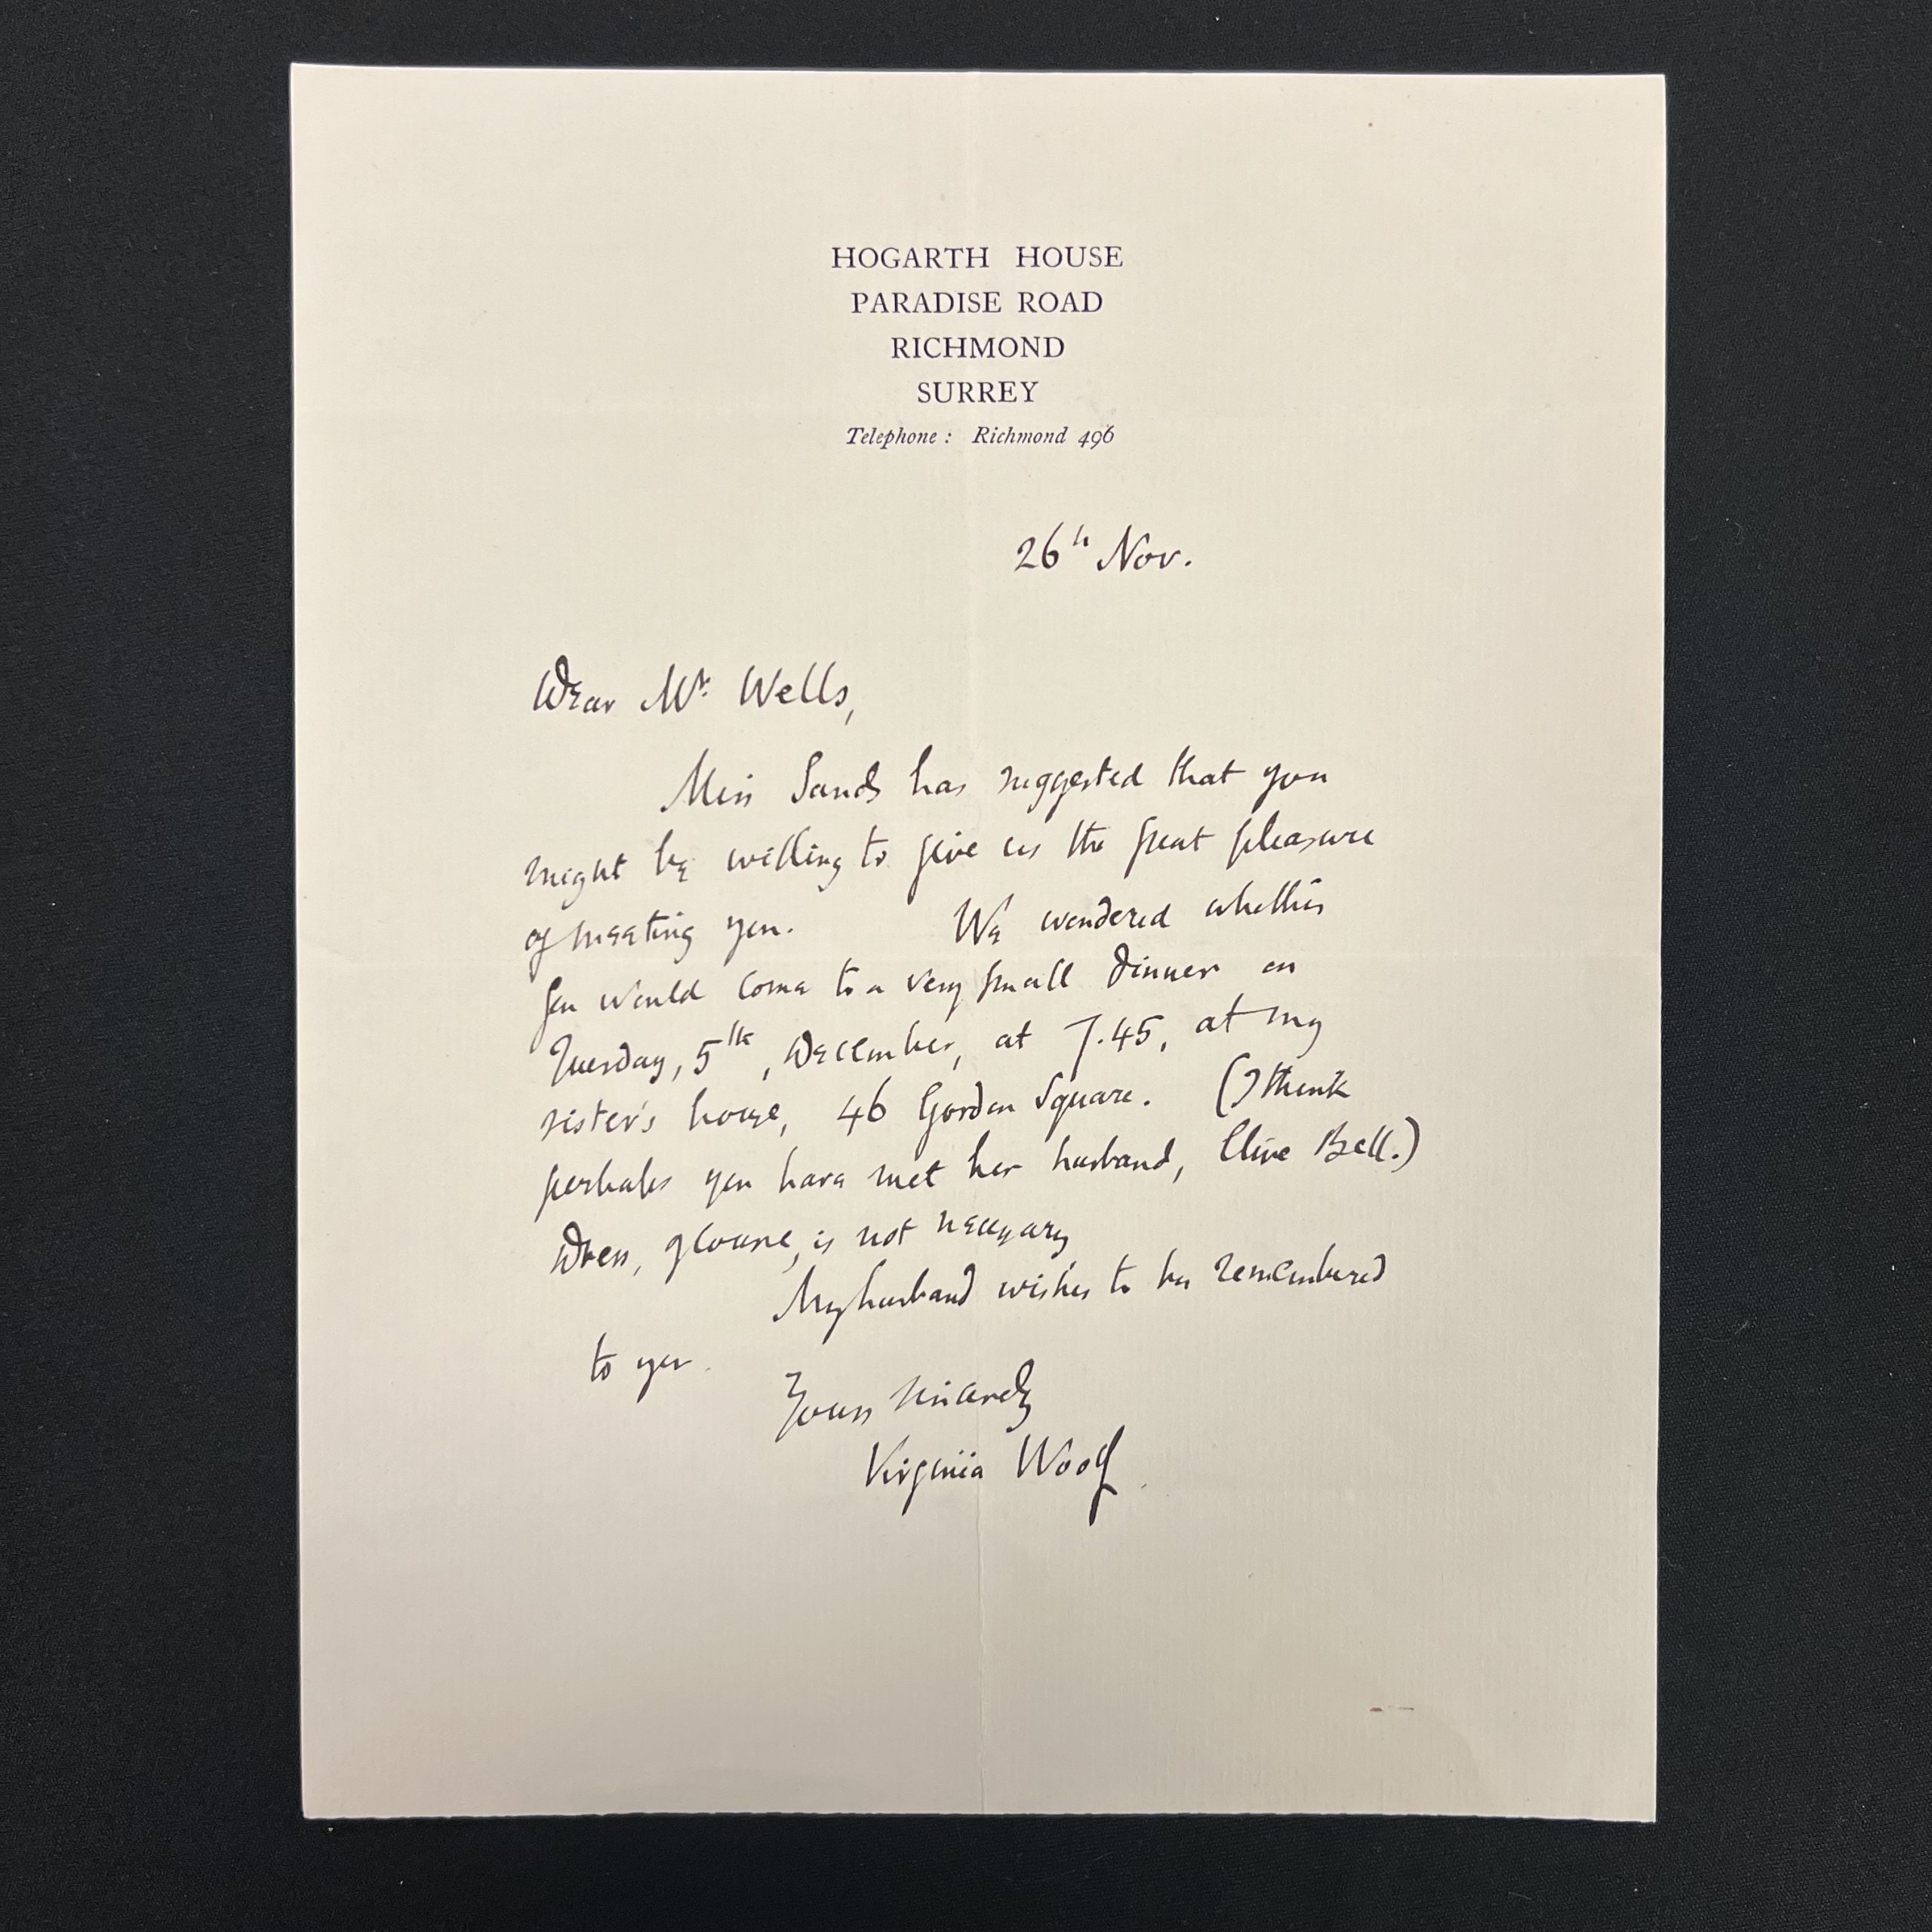 HOGARTH HOUSE
PARADISE ROAD
RICHMOND
SURREY
Telephone : Richmond 496
26th Nov.
Dear Mr. Wells,
Miss Sands has suggested that you
might be willing to give us the great pleasure
of meeting you. We wondered whether
you would come to a very small dinner on
Tuesday, 5th, December, at 7.45, at my
sister's house, 46 Gordon Square. (I think
perhaps you have met her husband, Clive Bell.)
Dress, of course, is not necessary
My husband wishes to be remembered
to you.
Yours sincerely
Virginia Woolf